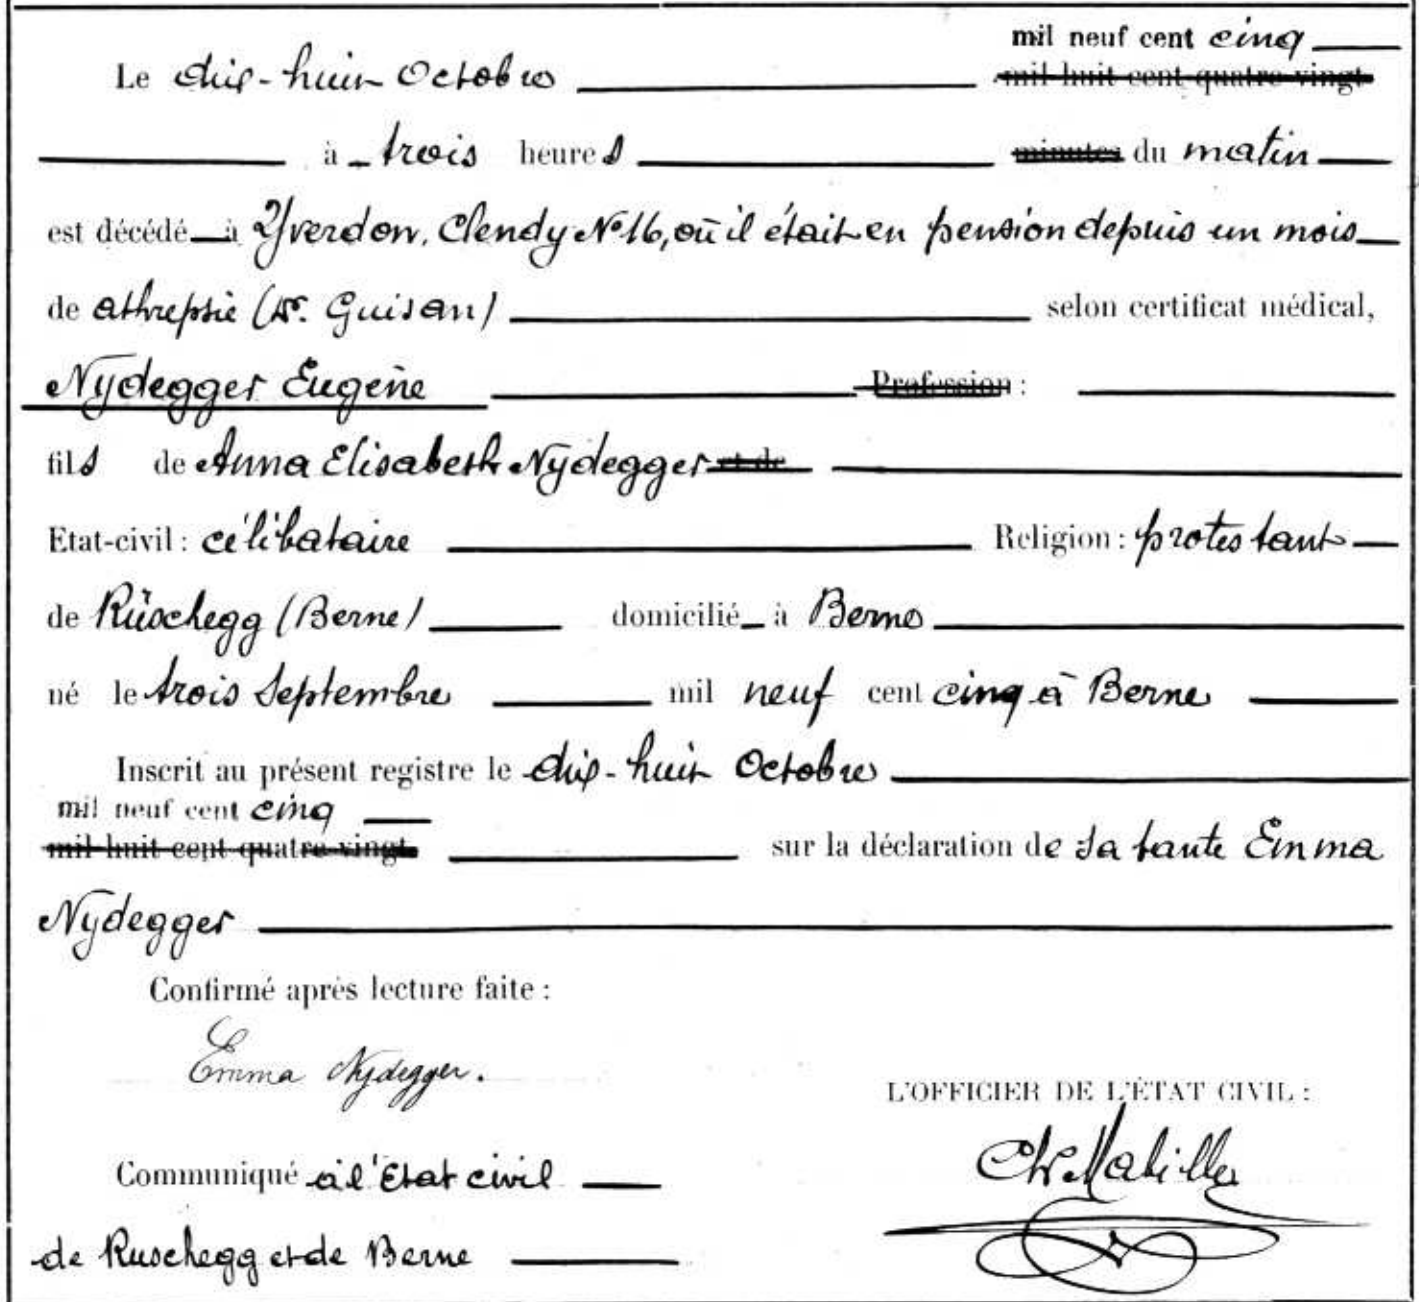 mil neuf cent cinq
Le dix-huit Octobre mil huit cent quatre-vingt
à trois heures minutes du matin
est décédé à Yverdon, Clendy No 16, où il était en pension depuis un mois
de athrepsie (Dr. Guisan) selon certificat médical,
Nydegger Eugène Profession :
fils de Anna Elisabeth Nydegger et de
Etat-civil : célibataire Religion : protestant
de Rüschegg (Berne) domicilié à Berne
né le trois Septembre mil neuf cent cinq à Berne
Inscrit au présent registre le dix-huit Octobre
mil neuf cent cinq
mil huit cent quatre-vingt sur la déclaration de sa tante Emma
Nydegger
Confirmé après lecture faite :
Emma Nydegger.
L'OFFICIER DE L'ÉTAT CIVIL :
Communiqué à l'Etat civil
de Ruschegg et de Berne